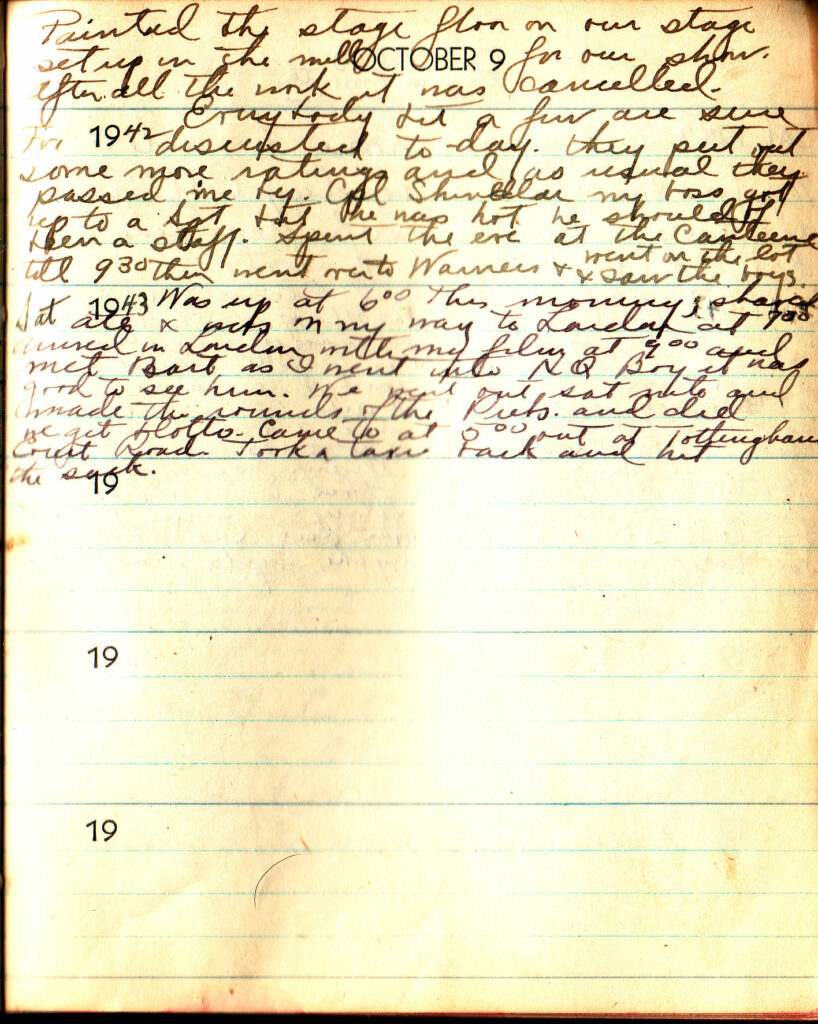 Painted the stage floor on our stage
set up in the mill OCTOBER 9 for our show.
After all the work it was cancelled.
Everybody but a few are sure
Fri 1942 discusted to-day. they put out
some more ratings and as usual they
passed me by. Cpl my boss got
up to a Sgt but he was hot he should of
been a staff. Spent the eve at the Canteene
till 9 30 then went over to Warners & went on the lot
& saw the boys.
Sat 1943 Was up at 6 00 this morning, shaved
ate & was on my way to London at 7 30
arrived in London with my film at 9 00 and
met Bart as I went into HQ Boy it was
good to see him. We went out sat nite and
made the rounds of the Pubs. and did
we get blotto. Came to at 5 00 out at Tottingham
Court Road. Took a taxi back and hit
the sack.
19
19
19